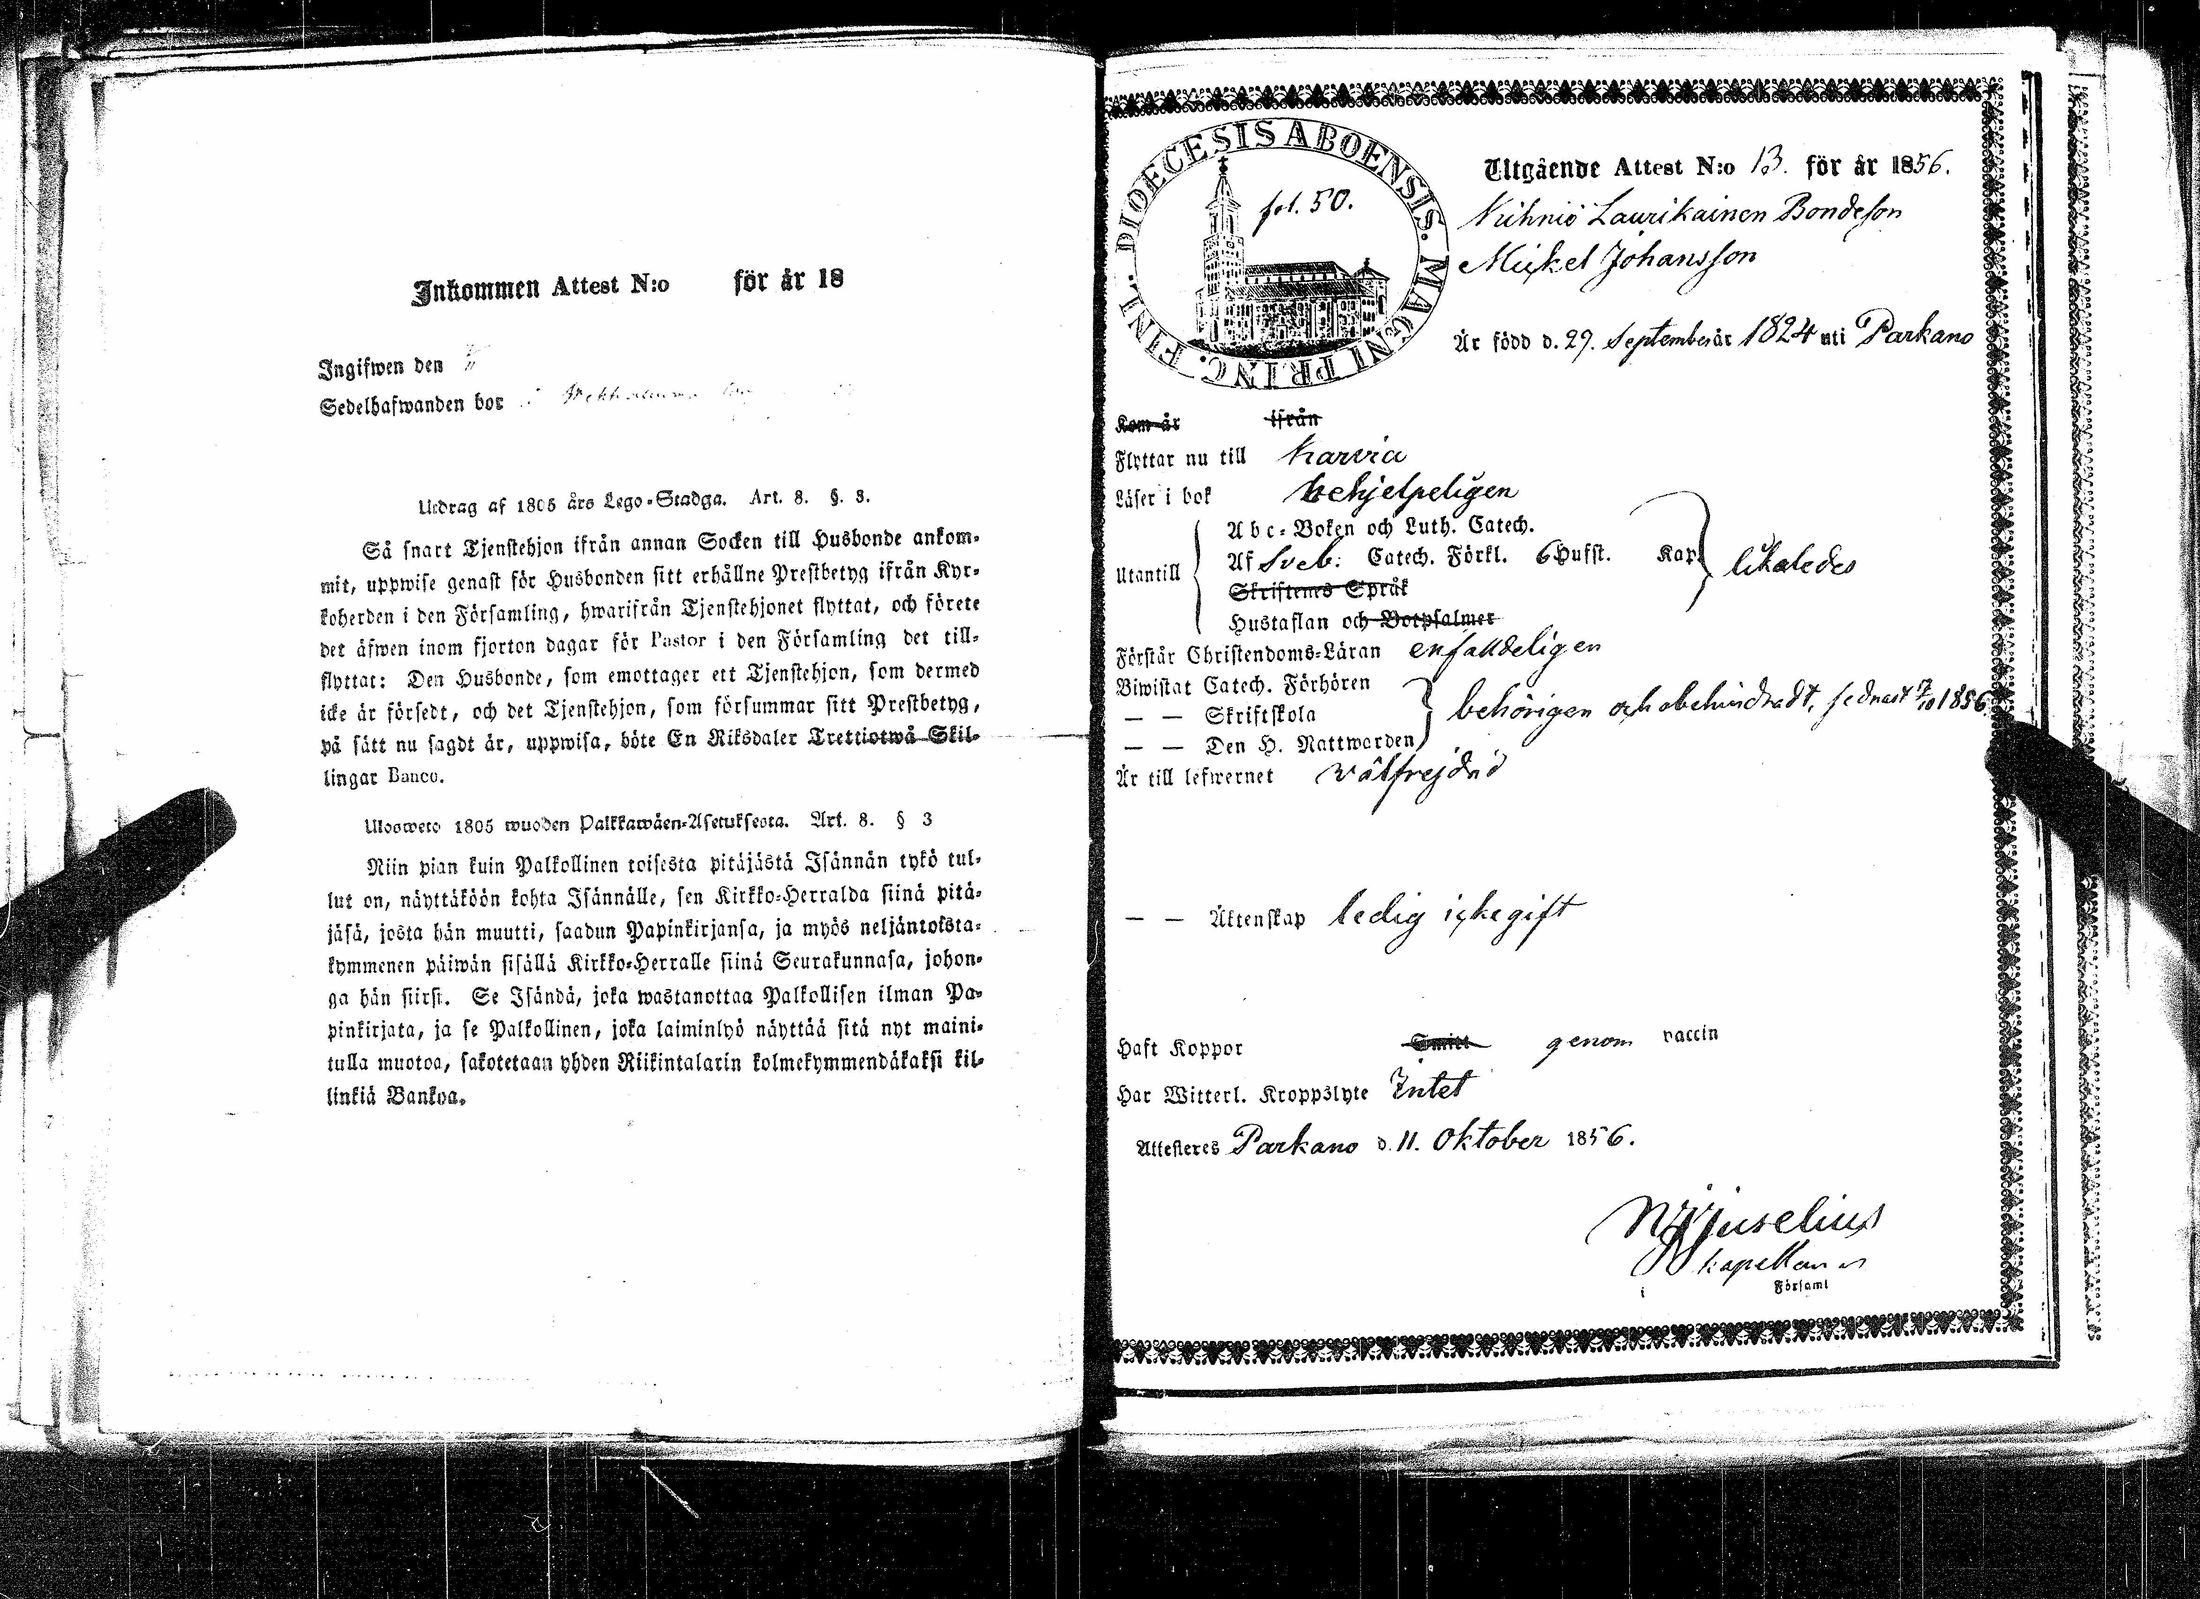 Inkommen Attest N:o för år 18
Ingifwen den
Sedelhafwanden bor
Utdrag af 1805 års Lego-Stadga. Art. 8. §. 3.
Så snart Tjenstehjon ifrån annan Socken till Husbonde ankom-
mit, uppwise genast för Husbonden sitt erhållne Prestbetyg ifrån Kyr-
koherden i den Församling, hwarifrån Tjenstehjonet flyttat, och förete
det äfwen inom fjorton dagar för Pastor i den Församling det till-
flyttat: Den Husbonde, som emottager ett Tjenstehjon, som dermed
icke är försedt, och det Tjenstehjon, som försummar sitt Prestbetyg,
på sätt nu sagdt är, uppwisa, böte En Riksdaler Trettiotwå Skil-
lingar Banco.
Ulosweto 1805 wuoden Palkkawäen-Asetuksesta. Art. 8. § 3
Niin pian kuin Palkollinen toisesta pitäjästä Isännän tykö tul-
lut on, näyttäköön kohta Isännälle, sen Kirkko-Herralda siinä pitä-
jäsä, josta hän muutti, saadun Papinkirjansa, ja myös neljäntoista-
kymmenen päiwän sisällä Kirkko-Herralle siinä Seurakunnasa, johon-
ga hän siirsi. Se Isändä, joka wastanottaa Palkollisen ilman Pa-
pinkirjata, ja se Palkollinen, joka laiminlyö näyttää sitä nyt maini-
tulla muotoa, sakotetaan yhden Riikintalarin kolmekymmendäkaksi kil-
linkiä Bankoa.
DIOECESIS ABOENSIS. MAGNI PRINC. FINL.
fol. 50.
Utgående Attest N:o 13. för år 1856.
Kihniö Laurikainen Bondeson
Mickel Johansson
Är född d. 29. September år 1824 uti Parkano
Kom år ifrån
Flyttar nu till Karvia
Läser i bok behjelpeligen
Abc-Boken och Luth. Catech.
Utantill Af Sveb: Catech. Förkl. 6 Hufst. Kap. likaledes
Skriftenes Språk
Hustaflan och Botpsalmer
Förstår Christendoms-Läran enfaldeligen
Biwistat Catech. Förhören
— — Skriftskola behörigen och obehindradt, sednast 1856
— — Den H. Nattwarden
Är till lefwernet välfrejdad
— — Äktenskap ledig icke gift
Haft Koppor Smitt genom vaccin
Har Witterl. Kroppslyte Intet
Attesteres Parkano d. 11. Oktober 1856.
Juselius
kapellan
i Församl